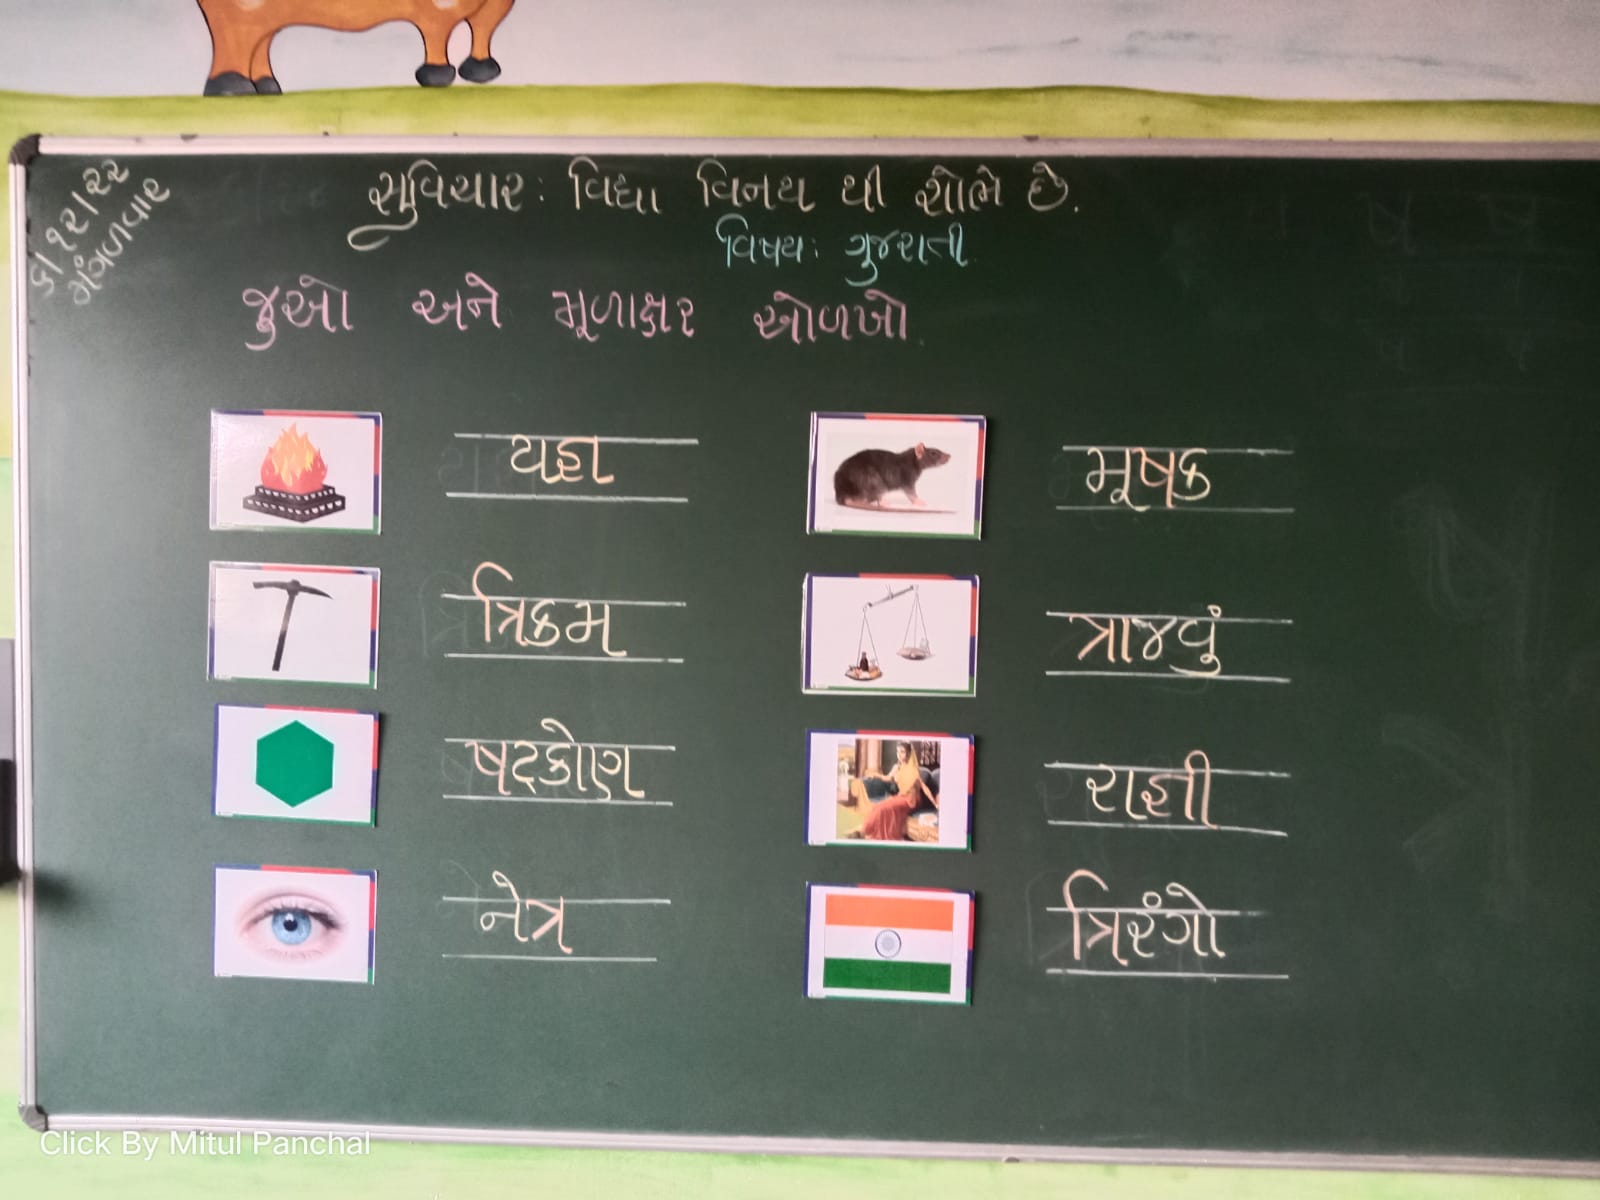 ૬/૧૨/૨૨
મંગળવાર
સુવિચાર: વિદ્યા વિનય થી શોભે છે.
વિષય: ગુજરાતી.
જુઓ અને મૂળાક્ષર ઓળખો.
યજ્ઞ મૂષક
ત્રિકમ ત્રાજવું
ષટ્કોણ રાજ્ઞી
નેત્ર ત્રિરંગો
Click By Mitul Panchal